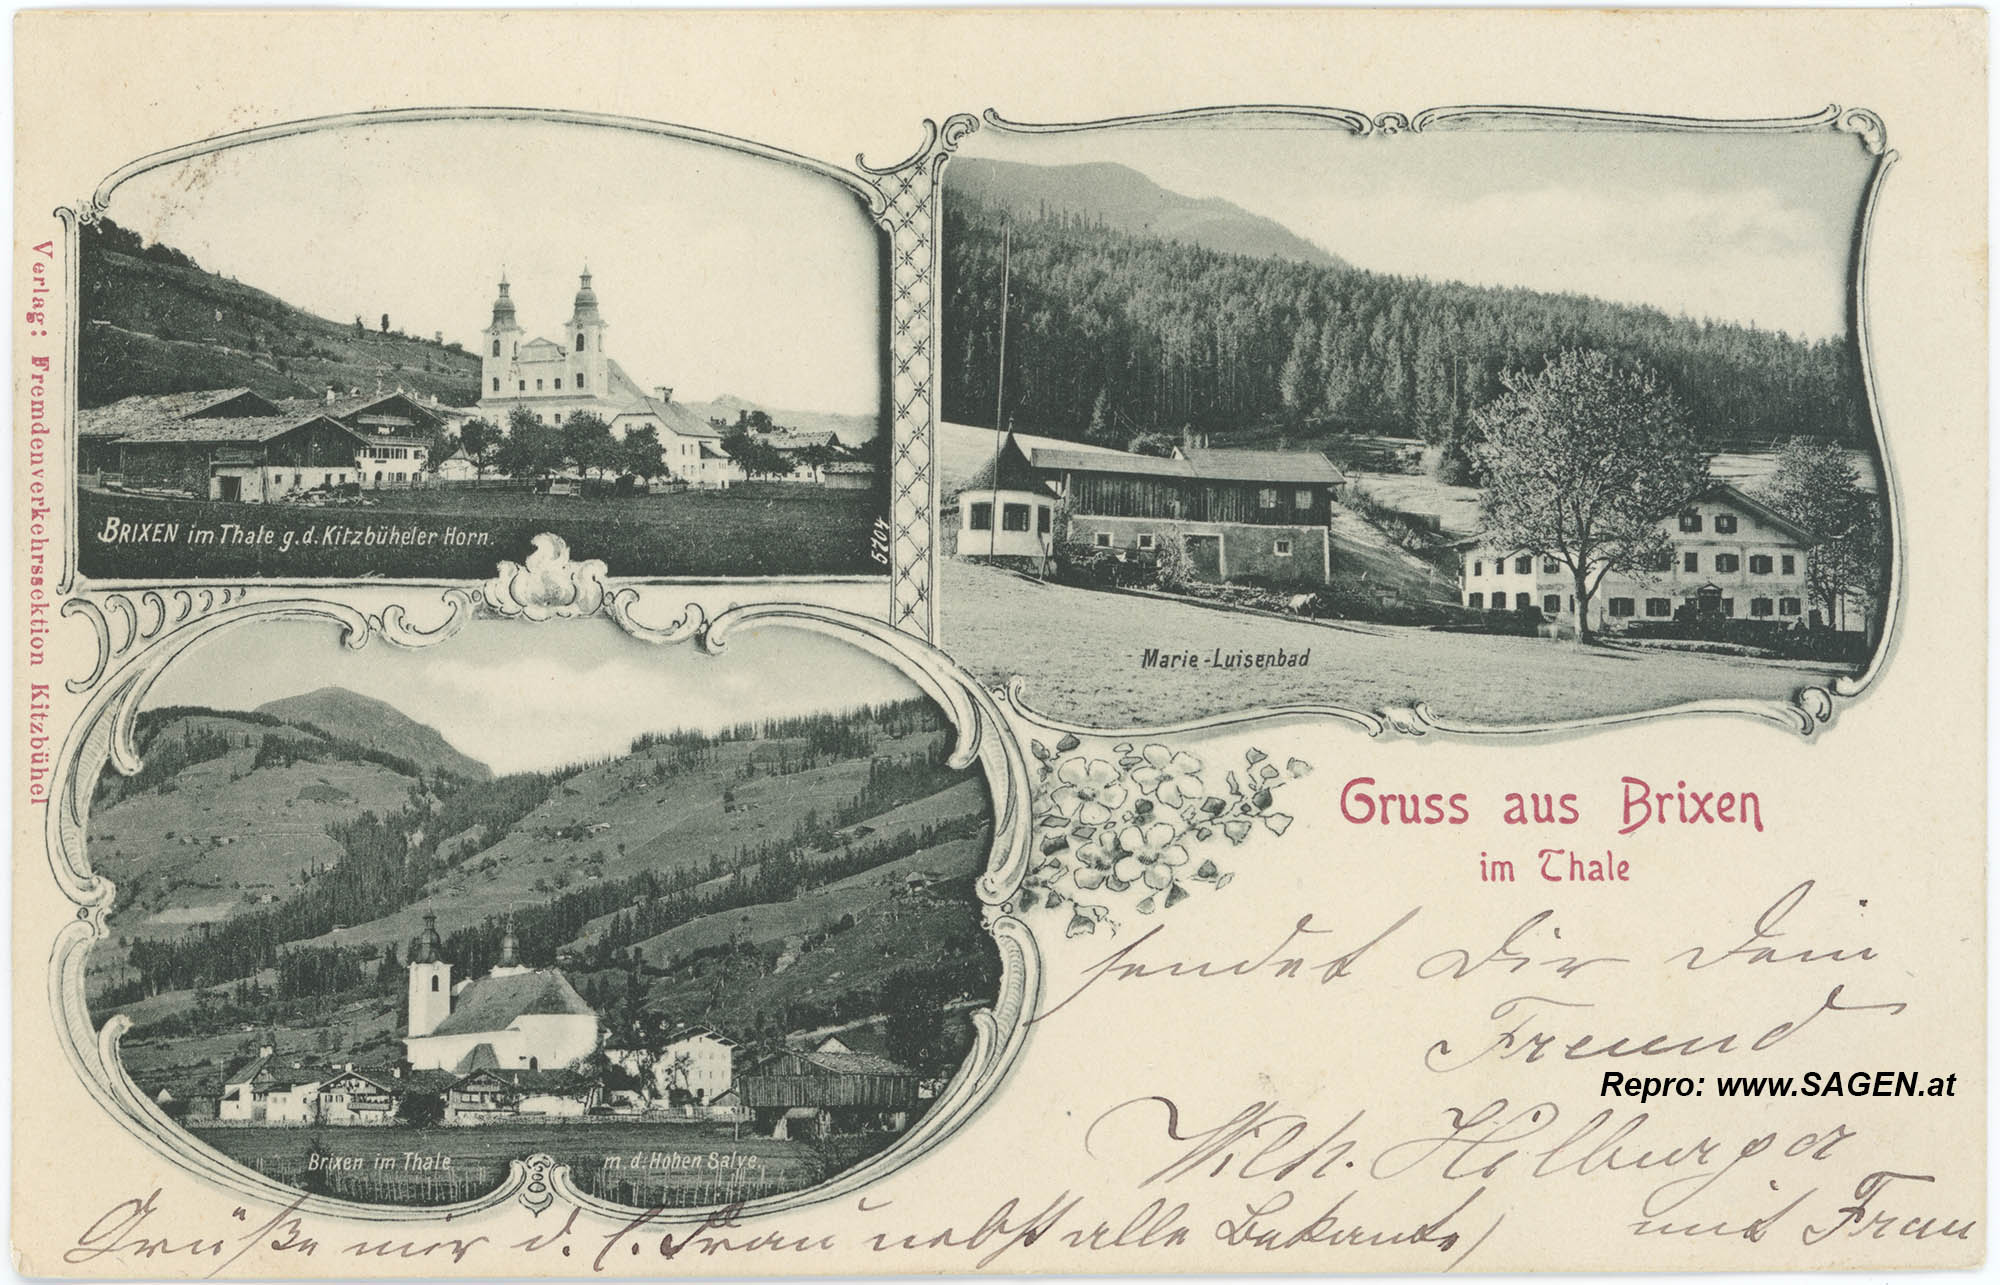 Verlag: Fremdenverkehrssektion Kitzbühel
BRIXEN im Thale g. d. Kitzbüheler Horn.
5704
Marie-Luisenbad
Brixen im Thale m. d. Hohen Salve.
Gruss aus Brixen
im Thale
sendet Dir Dein
Freund
Repro: www.SAGEN.at
Wilh. Hilburger
mit Frau
Grüße mir d. l. Frau nebst alle Bekante)